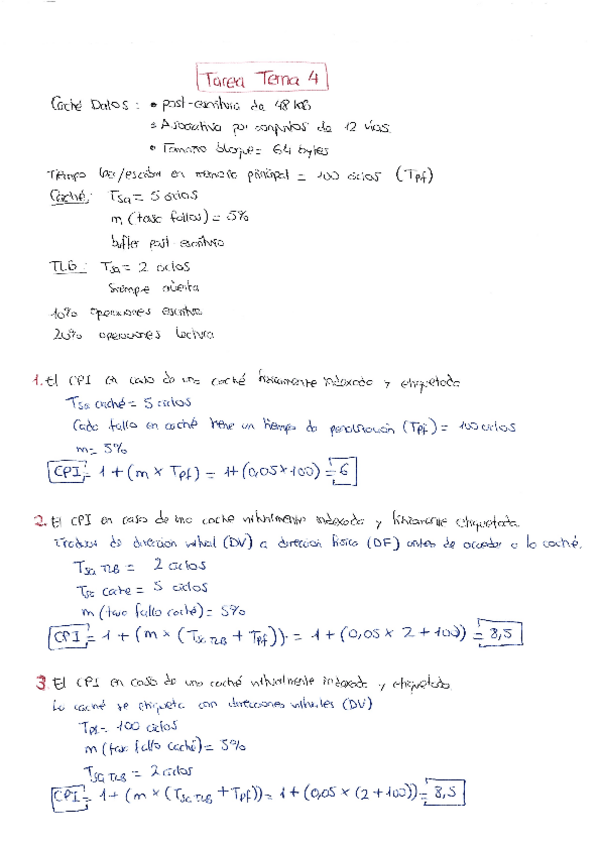 Tarea Tema 4
Caché Datos: • post-escritura de 48 kB
• Asociativa por conjuntos de 12 vías.
• Tamaño bloque = 64 bytes
Tiempo leer/escribir en memoria principal = 100 ciclos (Tpf)
Caché: Tsa = 5 ciclos
m (tasa fallos) = 5%
buffer post-escritura
TLB: Tsa = 2 ciclos
Siempre acierta
10% operaciones escritura
20% operaciones lectura
1. El CPI en caso de una caché físicamente indexada y etiquetada
Tsa caché = 5 ciclos
Cada fallo en caché tiene un tiempo de penalización (Tpf) = 100 ciclos
m = 5%
CPI = 1 + (m × Tpf) = 1 + (0,05 × 100) = 6
2. El CPI en caso de una caché virtualmente indexada y físicamente etiquetada.
de dirección virtual (DV) a dirección física (DF) antes de acceder a la caché.
Tsa TLB = 2 ciclos
Tsa cache = 5 ciclos
m (tasa fallo caché) = 5%
CPI = 1 + (m × (Tsa TLB + Tpf)) = 1 + (0,05 × 2 + 100) = 8,5
3. El CPI en caso de una caché virtualmente indexada y etiquetada.
La caché se etiqueta con direcciones virtuales (DV)
Tpf = 100 ciclos
m (tasa fallo caché) = 5%
Tsa TLB = 2 ciclos
CPI = 1 + (m × (Tsa TLB + Tpf)) = 1 + (0,05 × (2 + 100)) = 8,5